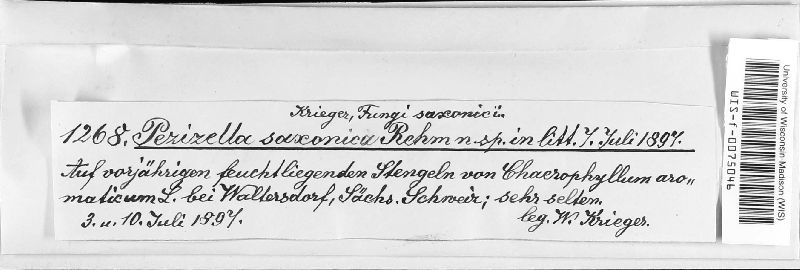 Krieger, Fungi saxonici.
1268. Pezizella saxonica Rehm n. sp. in litt. 7. Juli 1897.
Auf vorjährigen feucht liegenden Stengeln von Chaerophyllum aro-
maticum L. bei Waltersdorf, Sächs. Schweiz; sehr selten.
3. u. 10. Juli 1897.
leg. W. Krieger.
University of Wisconsin Madison (WIS)
WIS-f-0075046